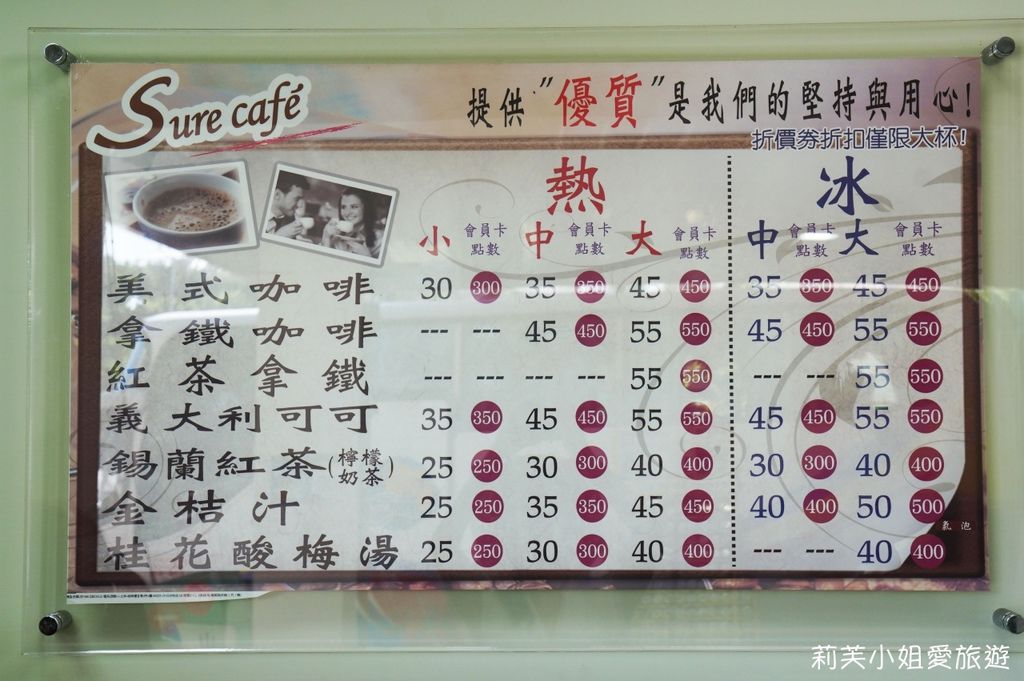 Sure café
提供"優質"是我們的堅持與用心!
折價券折扣僅限大杯!
熱 冰
小 會員卡點數 中 會員卡點數 大 會員卡點數 中 會員卡點數 大 會員卡點數
美式咖啡 30 300 35 350 45 450 35 350 45 450
拿鐵咖啡 --- --- 45 450 55 550 45 450 55 550
紅茶拿鐵 --- --- --- --- 55 550 --- --- 55 550
義大利可可 35 350 45 450 55 550 45 450 55 550
錫蘭紅茶(檸檬奶茶) 25 250 30 300 40 400 30 300 40 400
金桔汁 25 250 35 350 45 450 40 400 50 500
氣泡
桂花酸梅湯 25 250 30 300 40 400 --- --- 40 400
莉芙小姐愛旅遊